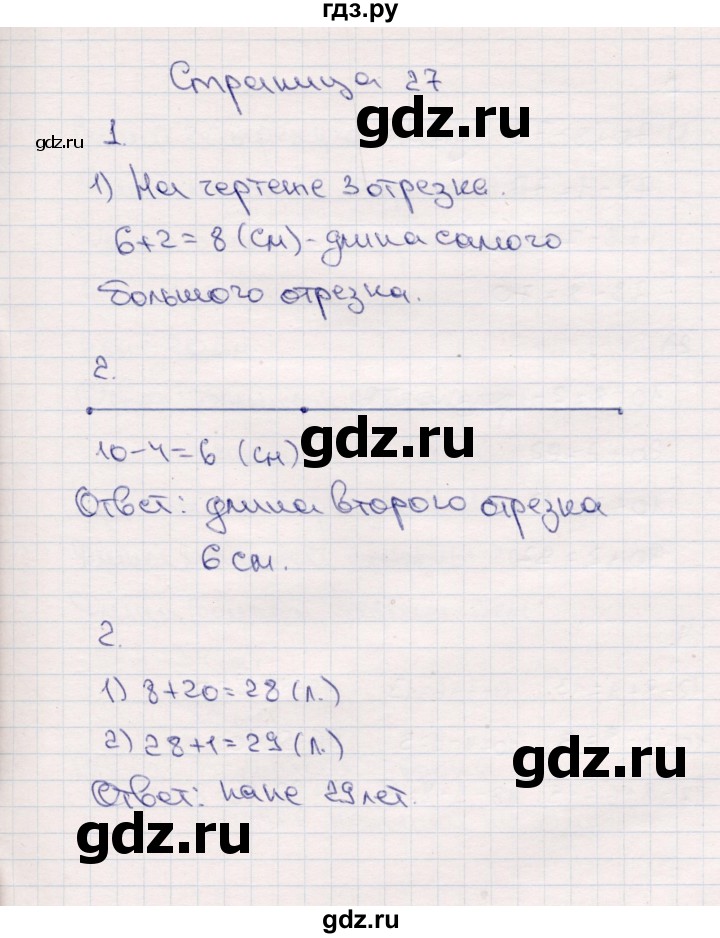 гдз.ру
Страница 27
gdz.ru
gdz.ru
1.
1) На чертеже 3 отрезка.
6+2=8 (см) - длина самого
большого отрезка.
2.
gdz.ru
10-4=6 (см)
Ответ: длина второго отрезка
6 см.
2.
1) 8+20=28 (л.)
2) 28+1=29 (л.)
gdz.ru
Ответ: папе 29 лет.
gdz.ru
gdz.ru